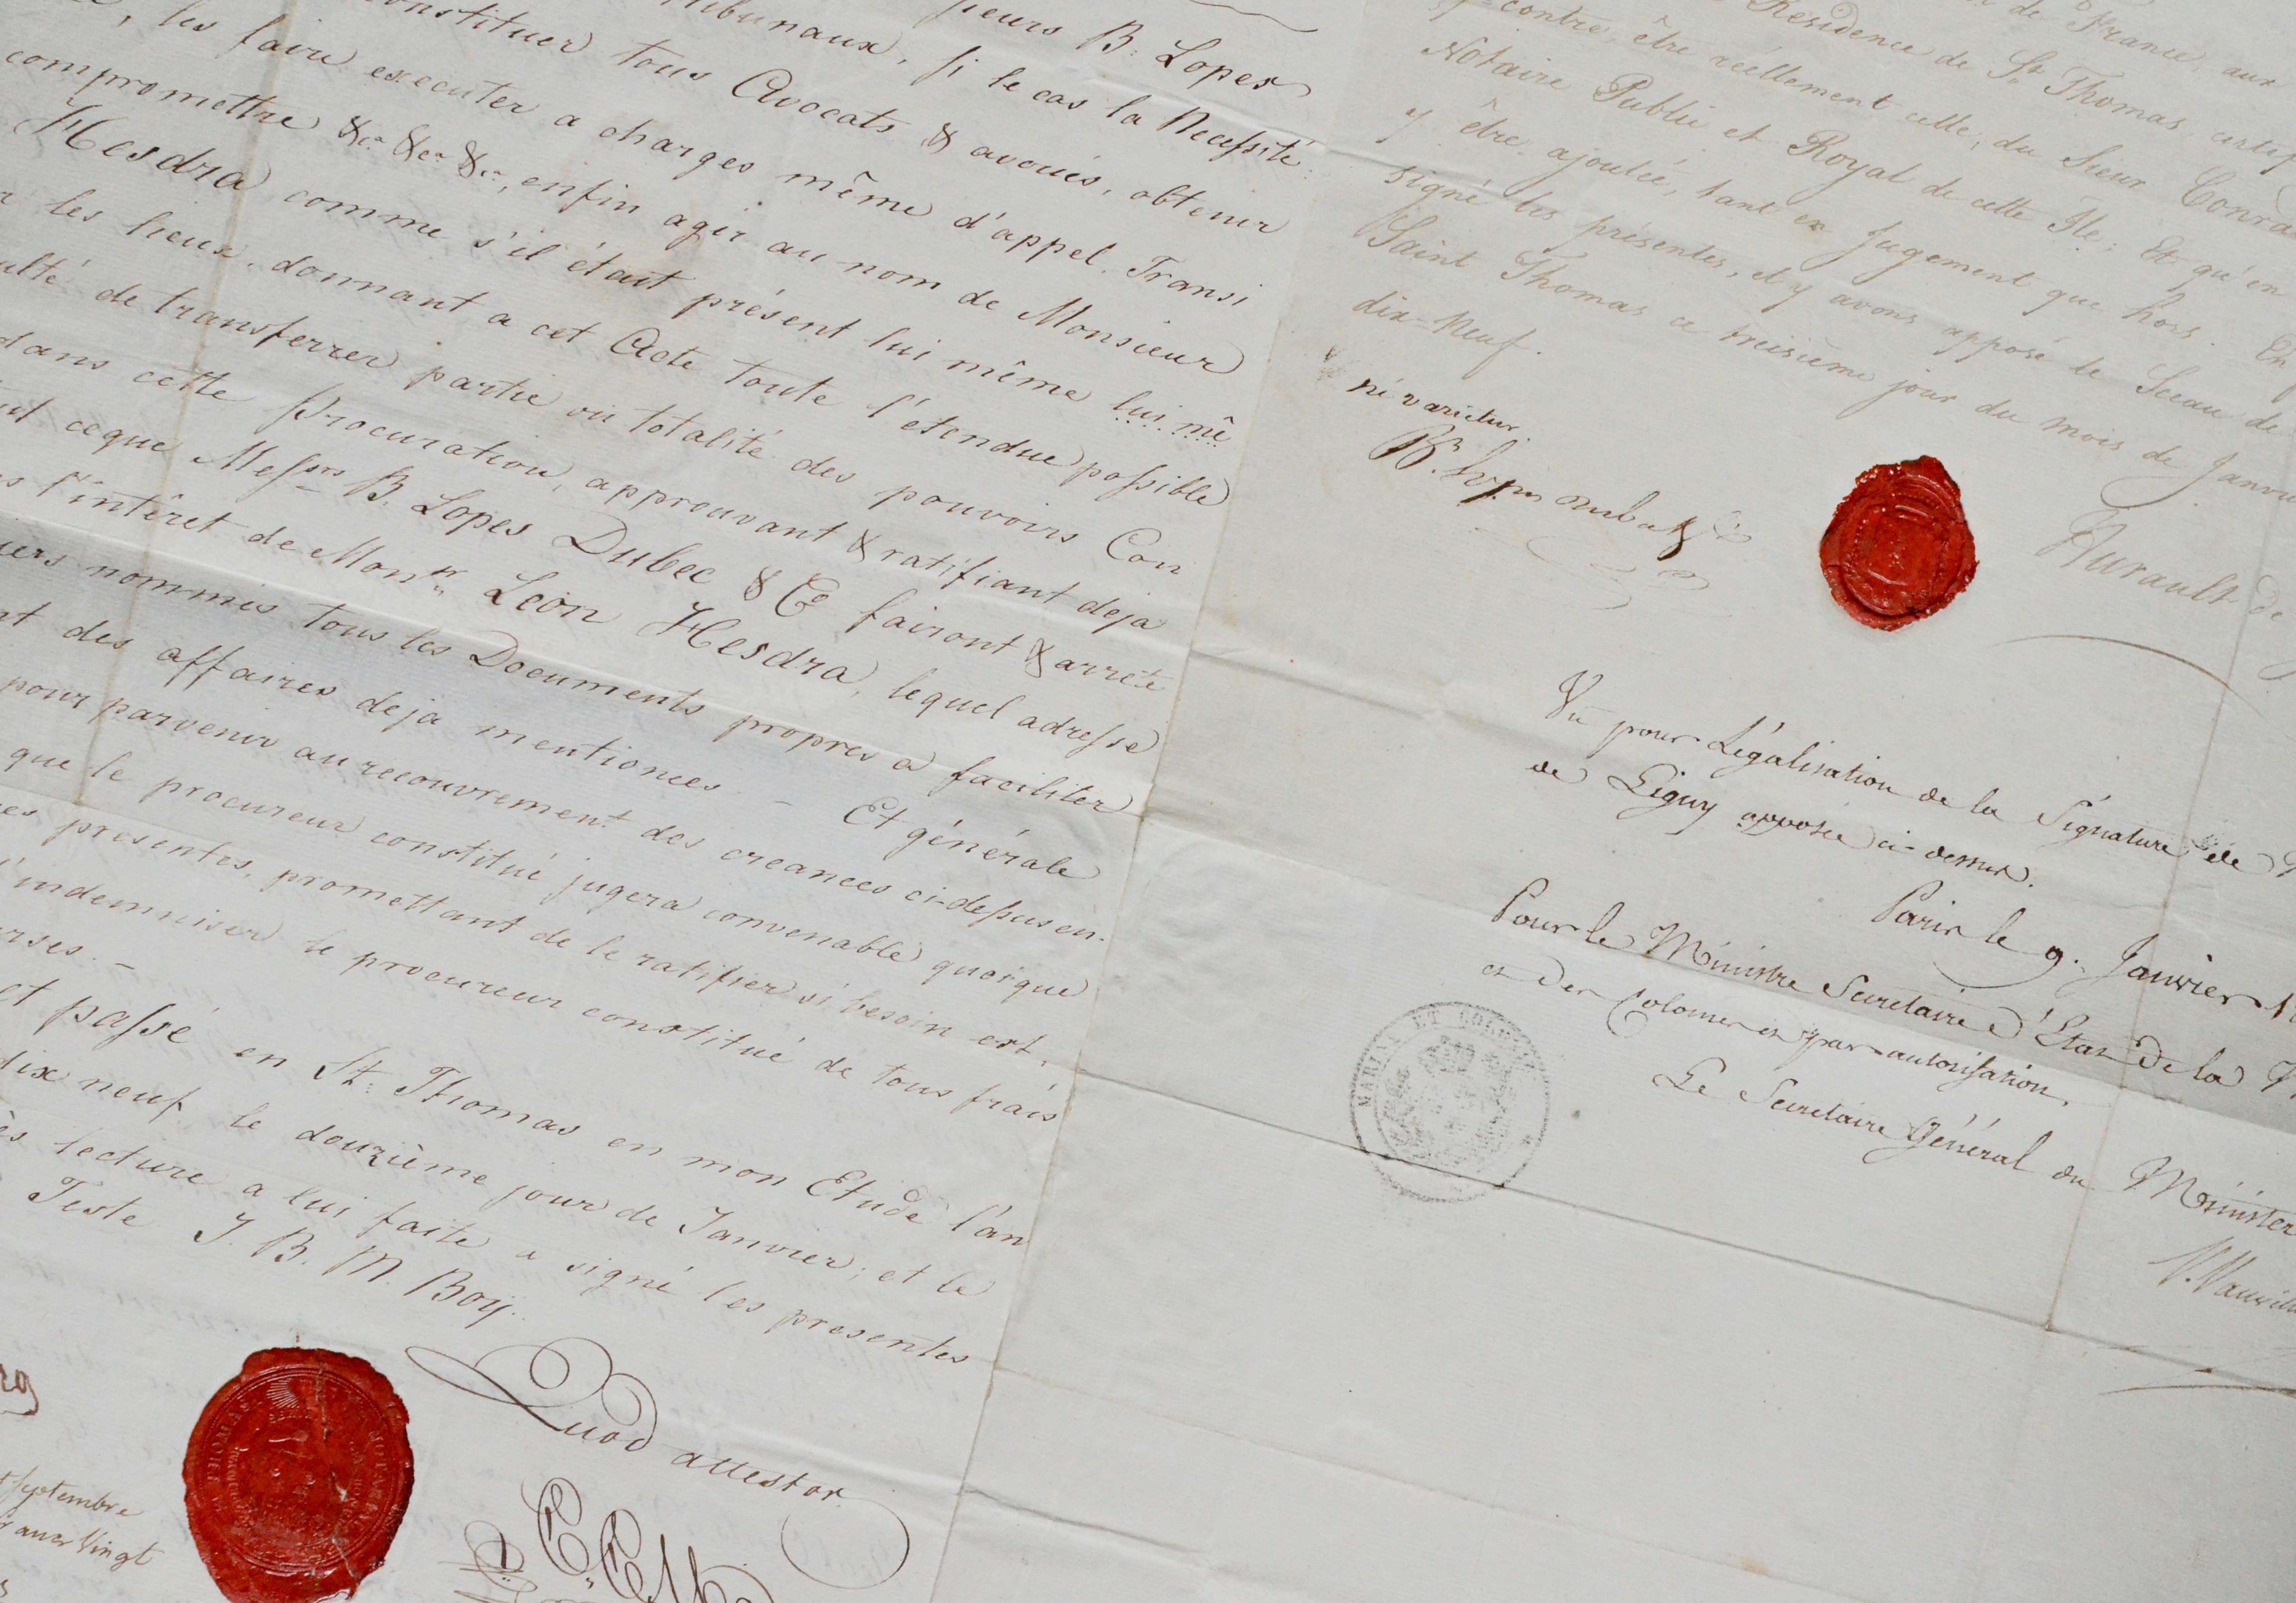 sieurs B. Lopes
Tribunaux, si le cas la Necessité
constituer tous Avocats & avoués, obtenir
, les faire executer a charges même d'appel, Transi
compromettre &ca &ca &ca, enfin agir au nom de Monsieur
Hesdra comme s'il était présent lui même lui mê
les lieux, donnant a cet Acte toute l'étendue possible
ulté de transferrer partie ou totalité des pouvoirs Con
dans cette Procuration, approuvant & ratifiant deja
ceque Messrs B. Lopes Dubec & Co fairont & arrete
l'intéret de Monsr Leon Hesdra, lequel adresse
iers nommés tous les Documents propres a faciliter
nt des affaires deja mentionees - Et générale
pour parvenir au recouvrement des creances ci-dessus en-
que le procureur constitué jugera convenable quoique
es presentes, promettant de le ratifier si besoin est,
l'indemniser le procureur constitué de tous frais
rses. -
et passé en St. Thomas en mon Etude l'an
dix neuf le douzième jour de Janvier; et le
ès lecture a lui faite a signé les presentes
Teste J. B. M. Boy.
Quod attestor
Septembre
Vingt
de France, aux
Residence de St. Thomas, certif
contre, être réellement celle, du Sieur Conra
Notaire Public et Royal de cette Ile; Et qu'en
y être ajoutée, tant en Jugement que hors. En
signé les présentes, et y avons apposé le Sceau de
Saint Thomas ce treisième jour du mois de Janvi
dix-Neuf.
né varietur.
Hurault de
Vu pour Légalisation de la Signature de
de Ligny apposée ci-dessus.
Paris le 9. Janvier 1
Pour le Ministre Secretaire d'Etat de la
et des Colonies et par autorisation,
Le Secretaire Général du Minister
MARINE ET COLONIES